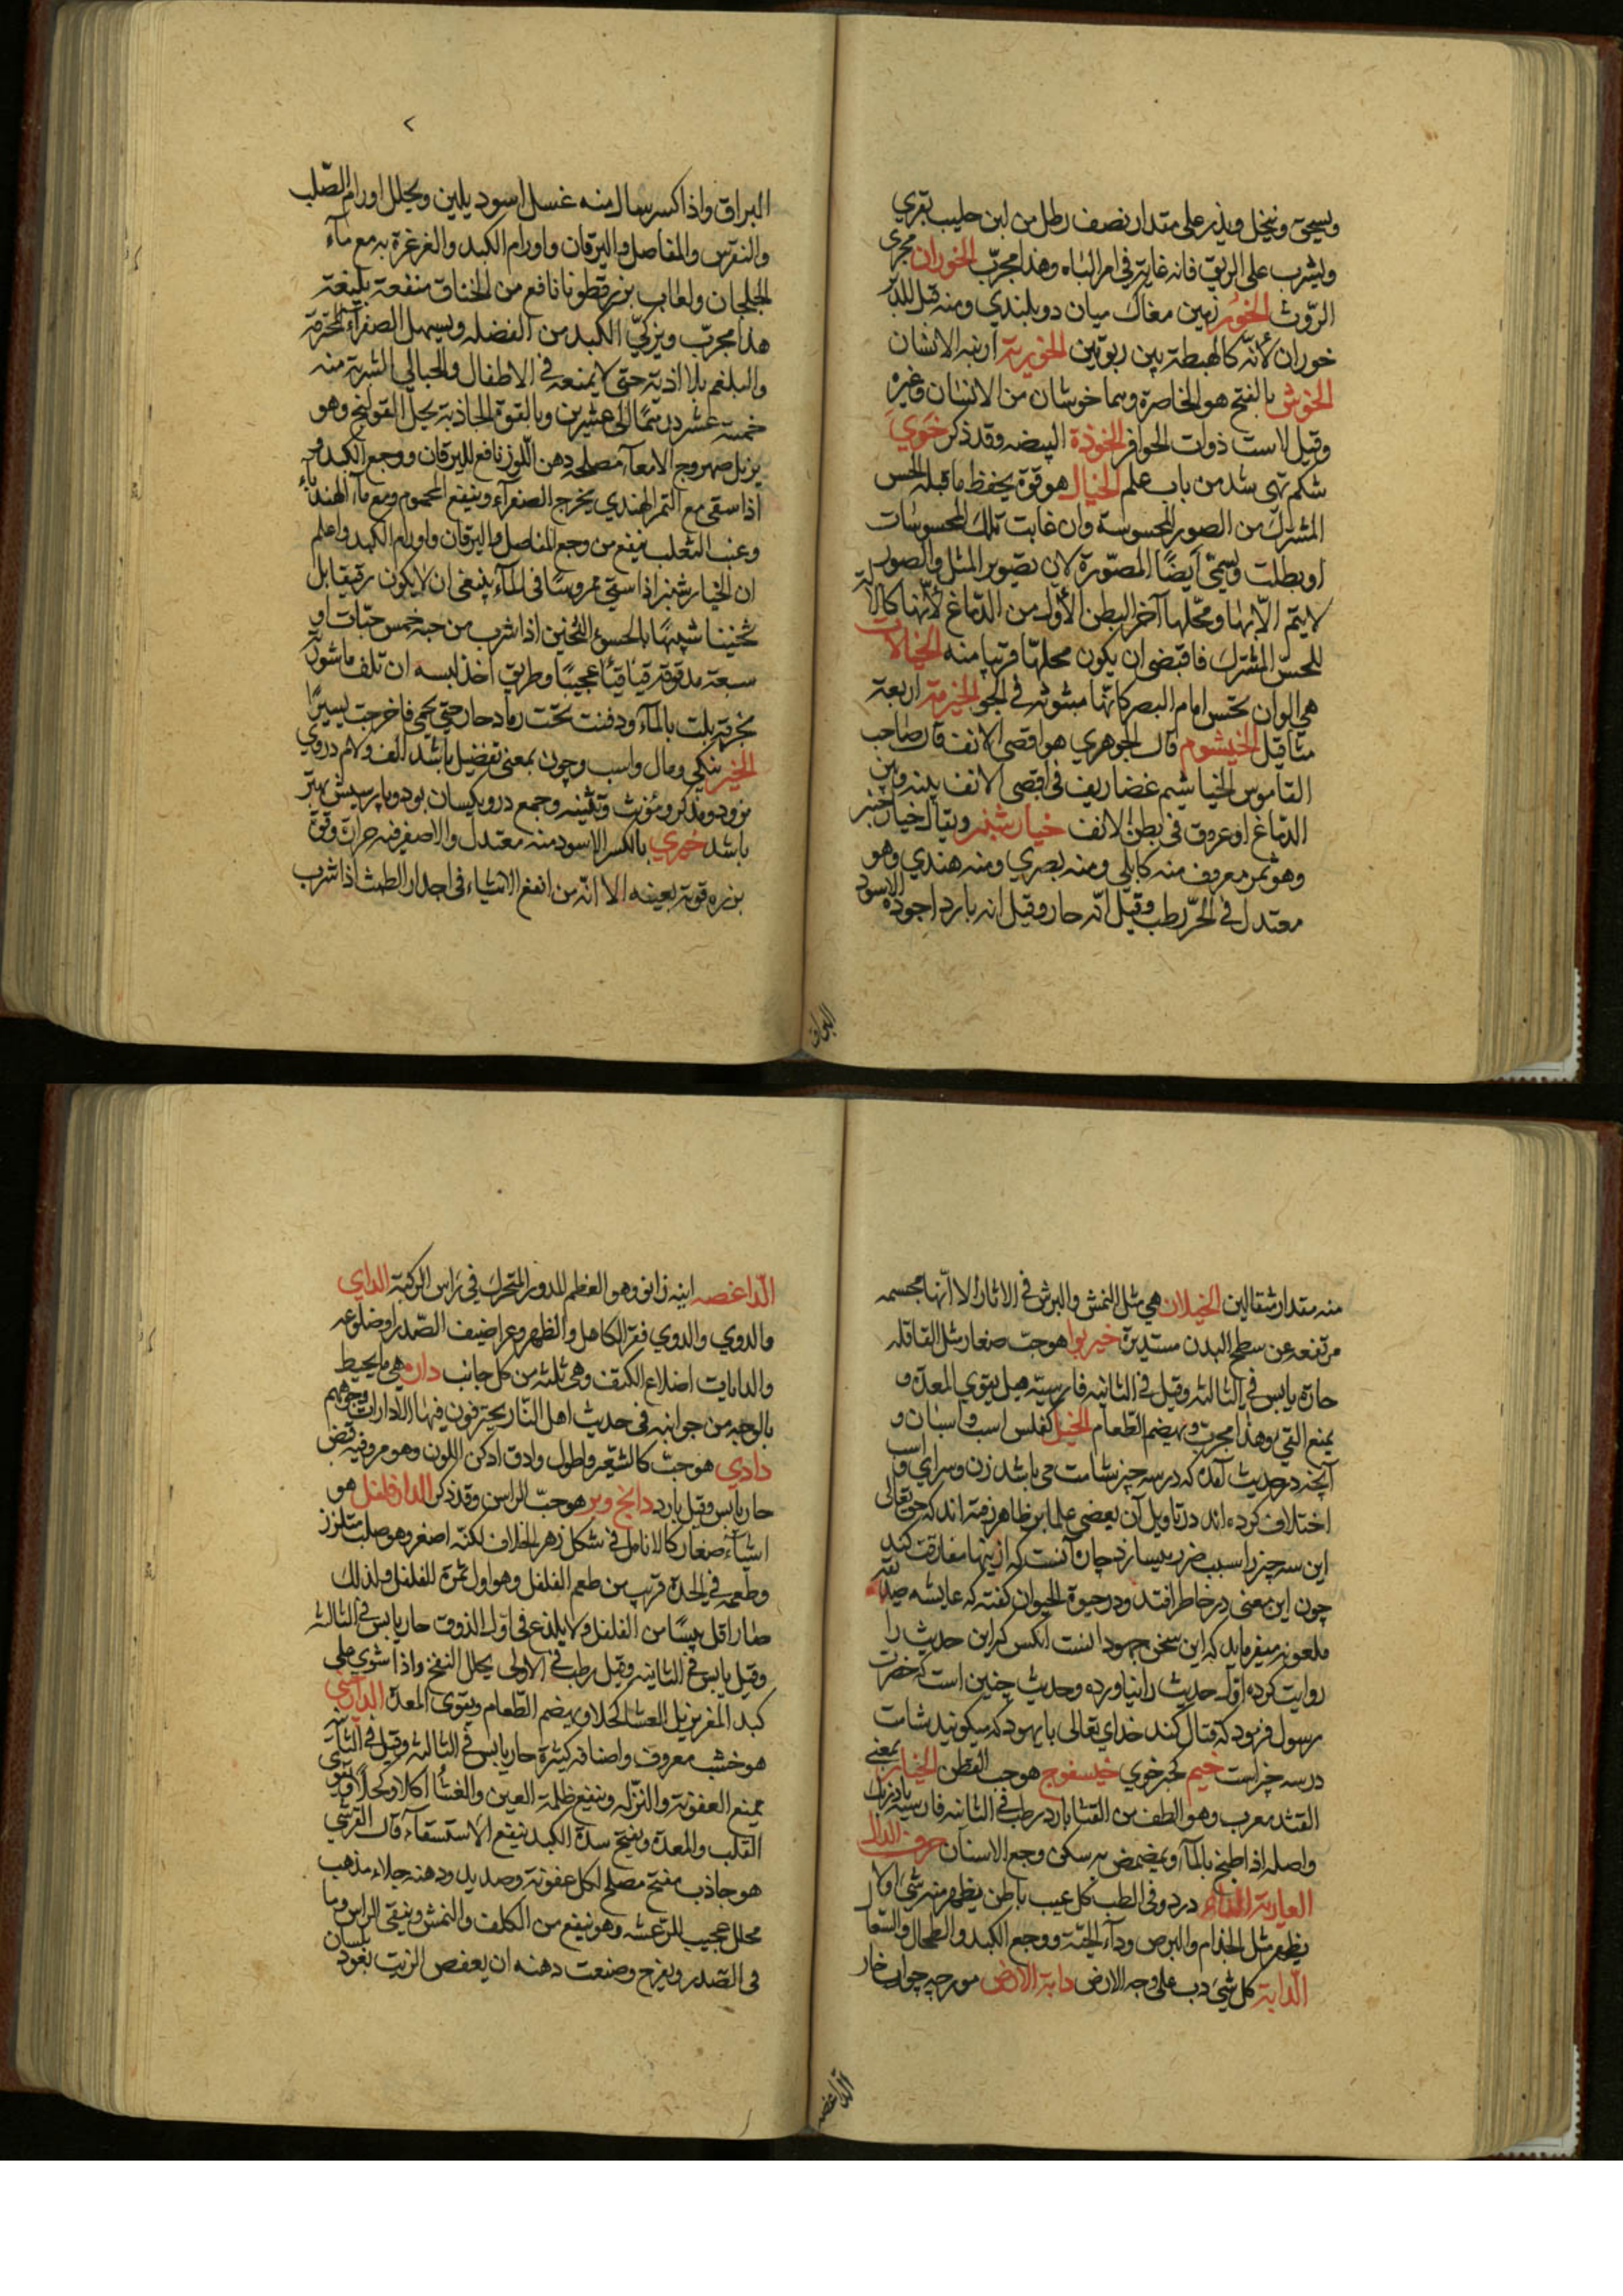 ويسحق وينخل ويذر على مقدار نصف رطل من لبن حليب بقري
ويشرب على الريق فانه غاية في امر الباه وهذا مجرّب الخوران مجرى
الرّوث الخور زمين مغاك ميان دو بلندي ومنه قيل للدبر
خوران لأنّه كالهبطة بين ربوتين الخورية ارنبه الانسان
الخوش بالفتح هو الخاصرة وهما خوشان من الانسان وغيره
وقيل لاست ذوات الحوافر الخوذة البيضه وقد ذكر خوي
شكم تهى شد من باب علم الخيال هو قوة يحفظ ما قبله الحس
المشترك من الصور المحسوسة وان غابت تلك المحسوسات
او بطلت ويسمّى أيضًا المصّورة لان تصوير المثل والصور
لا يتم الاّ بها ومحّلها آخر البطن الأول من الدّماغ لأنّها كالآلة
للحسّ المشترك فاقتضى ان يكون محلهّا قريبا منه الخيالات
هي الوان تحسّ امام البصر كانّها مبثوثه في الجو الخيزمة اربعة
مثاقيل الخيشوم قال الجوهري هو اقصى الانف قال صاحب
القاموس الخياشيم غضاريف في اقصى الانف بينه وبين
الدّماغ او عروق في بطن الانف خيار شنبر ويقال خيار جنبر
وهو ثمر معروف منه كابلي ومنه بصري ومنه هندي وهو
معتدل في الحرّ رطب وقيل انّه حار وقيل انه بارد اجوده الاسود
البراق
البراق واذا كسر سال منه عسل اسود يلين ويحلل اورام الصّلب
والنقرس والمفاصل واليرقان واورام الكبد والغرغرة به مع ماء
الجلجان ولعاب بزرقطونا نافع من الخناق منفعة بليغة
هذا مجرّب ويزكيّ الكبد من الفضله ويسهل الصفراء المحترقة
والبلغم بلا اذية حتى لا يمنعه في الاطفال والحبالى الشربة منه
خمسة عشر درهمًا الى عشرين وبالقوة الجاذبة يحل القولنج وهو
يزيل صهروج الامعاء مصلحه دهن اللّوز نافع لليرقان ووجع الكبد
اذا سقي مع التمر الهندي يخرج الصفراء وينفع المحموم ومع ماء الهندباء
وعنب الثعلب ينفع من وجع المفاصل واليرقان واورام الكبد واعلم
ان الخيارشنبر اذا سقي ممروسًا في الماء ينبغى ان لا يكون رقيقا بل
ثخينا شبيهًا بالحسو الثخين اذا شرب من حبه خمس حبّات او
سبعة مدقوقة قيا قيئًا عجيبًا وطريق اخذ لبه ان تلف ماشون
بخرقة بلت بالماء ودفنت تحت رماد حار حتي يحمى فاخرجت يسيرًا
الخير نيكي ومال واسب وچون بمعنى تفضيل باشد الف ولام دروي
نرود ومذكر ومؤنث وتثنيه وجمع درو يكسان بود وپارسيش بهتر
باشد خيري بالكسر الاسود منه معتدل والاصفر فيه حرارة وقوة
بزره قوية بعينه الا انّه من انفع الاشياء في ادرار الطمث اذا شرب
منه مقدار مثقالين الخيلان هي مثل النمش والبرش في الاثار الا انّها مجسمه
مرتفعه عن سطح البدن مستديرة خيربوا هو حبّ صغار مثل القاقله
حارّه يابس في الثالثه وقيل في الثانيه فارسيّه هيل يقوي المعدة و
يمنع القي وهذا مجرب ويهضم الطّعام الخيل كفلس اسب واسبان و
آنچه در حديث آمده كه در سه چيز شامت مى باشد زن وسراي واسب
اختلاف كرده اند در تأويل آن بعضى علما بر ظاهر رفته اند كه حق تعالى
اين سه چيز را سبب ضرر ميسازد چاره آنست كه از ينها مفارقت كند
چون اين معنى در خاطر افتد ودر حيوة الحيوان گفته كه عايشه صديقه
ملعونه ميفرمايد كه اين سخن جهود انست آنكس كه اين حديث را
روايت كرده اول حديث را نياورده وحديث چنين است كه حضرت
رسول فرمود كه قتال كند خداي تعالى با يهود كه ميكويند شامت
در سه چيز است خيم كبر خوي خيسفوج هو حب القطن الخيار بمعنى
القثد معرب وهو الطف من القثا بارد رطب في الثانيه فارسيّه بادرنك
واصله اذا طبخ بالماء ويمضمض به سكن وجع الاسنان حرف الدال
درد وفي الطب كل عيب باطن يظهر منه شي او لا
يظهر مثل الجذام والبرص ودآء الحيّة ووجع الكبد والطحال والسعال
الدّابة كل شي دب على وجه الارض دابة الارض مورچه چوب خار
الداغصه
الدّاغصه اينه زانو وهو العظم المدور المتحرك في راس الركبة الداي
والدوي والدوي فقر الكاهل والظهر وعراضيف الصّدر او ضلوعه
والدايات اضلاع الكتف وهي ثلثه من كل جانب داره هي ما يحيط
بالوجه من جوانبه في حديث اهل النّار يحترقون فيها الا دارات وجوههم
دادي هو حبّ كالشعّير واطول وادق ادكن اللون وهو مر وفيه قبض
حار يابس وقيل بارد دانج وبر هو حبّ الراس وقد ذكر الدارفلفل هو
اشيآء صغار كالانامل في شكل زهر الخلاف لكنّه اصغر وهو صلب متلزز
وطعمه في الحدة قريب من طعم الفلفل وهو اول ثمرة للفلفل ولذلك
صار اقل يبسًا من الفلفل ولا يلذع في اول الذوق حار يابس في الثالثه
وقيل يابس في الثانيه وقيل رطب في الاولى يحلل النفخ واذا شوي على
كبد المغر يزيل العشا كحلا ويهضم الطّعام ويقوى المعدة
هو خشب معروف واصنافه كثيرة حار يابس في الثالثه وقيل في الثانيه
يمنع العفونة والنّزله وينفع ظلمة العين والغشا اكلا وكحلا ويقوي
القلب والمعدة ويفتح سدة الكبد ينفع الاستسقآء قال القرشي
هو جاذب مفتح مصلح لكل عفونة وصديد ودهنه جلاء مذهب
محلل عجيب للرّعشه وهو ينفع من الكلف والنمش وينقي الراس وما
في الصّدر ويفرح وصنعت دهنه ان يعفص الزيت بعود بلسان